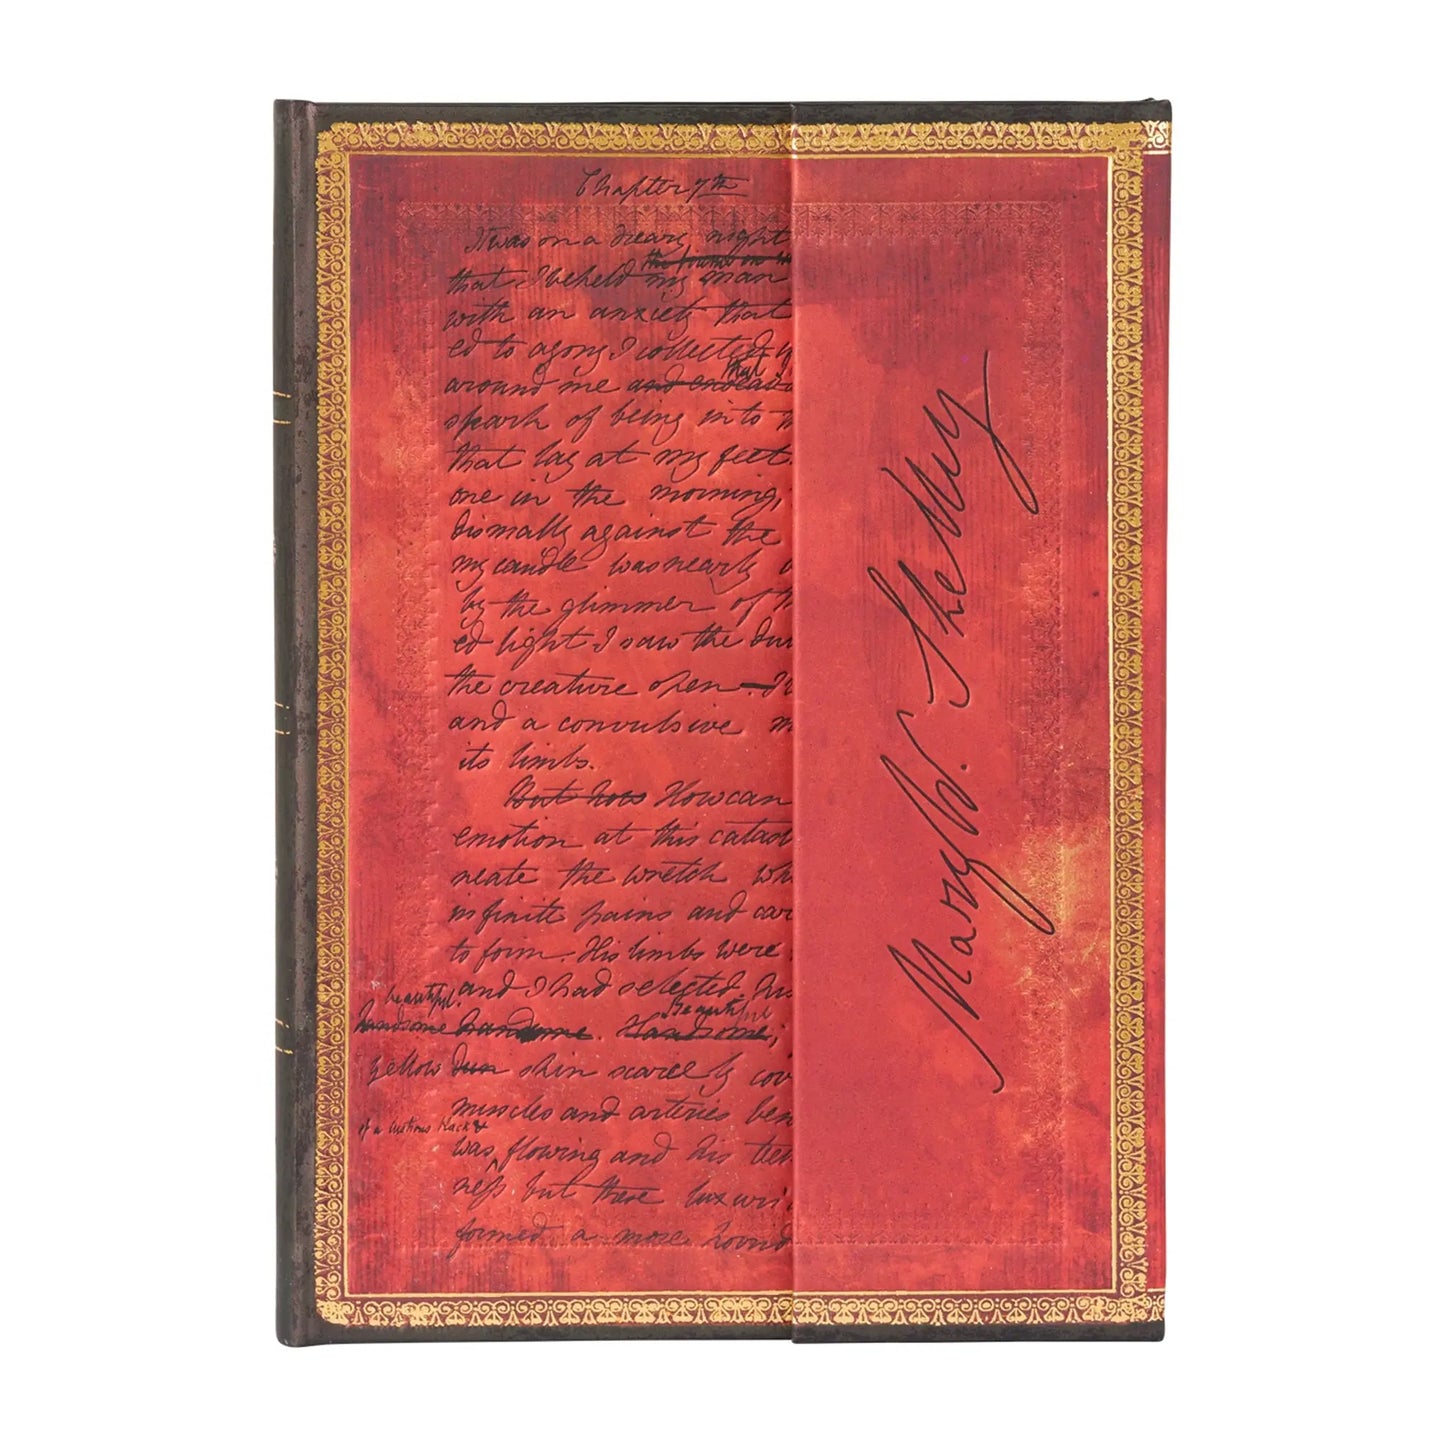 Chapter 7th
It was on a dreary night
that I beheld the frame on wh my man
with an anxiety that
ed to agony I collected
around me and endeavo that
spark of being into th
that lay at my feet.
one in the morning,
dismally against the
my candle was nearly
by the glimmer of th
ed light I saw the dul
the creature open — I
and a convulsive m
its limbs.
But how How can
emotion at this catast
neate the wretch wh
infinite pains and car
to form. His limbs were
beautiful. and I had selected his
handsome handsome. Handsome; Beautiful
yellow dun skin scarcely cov
muscles and arteries ben
of a lustrous black &
was flowing and his tee
neſs but these luxuri
formed a more horrid
Mary W. Shelley